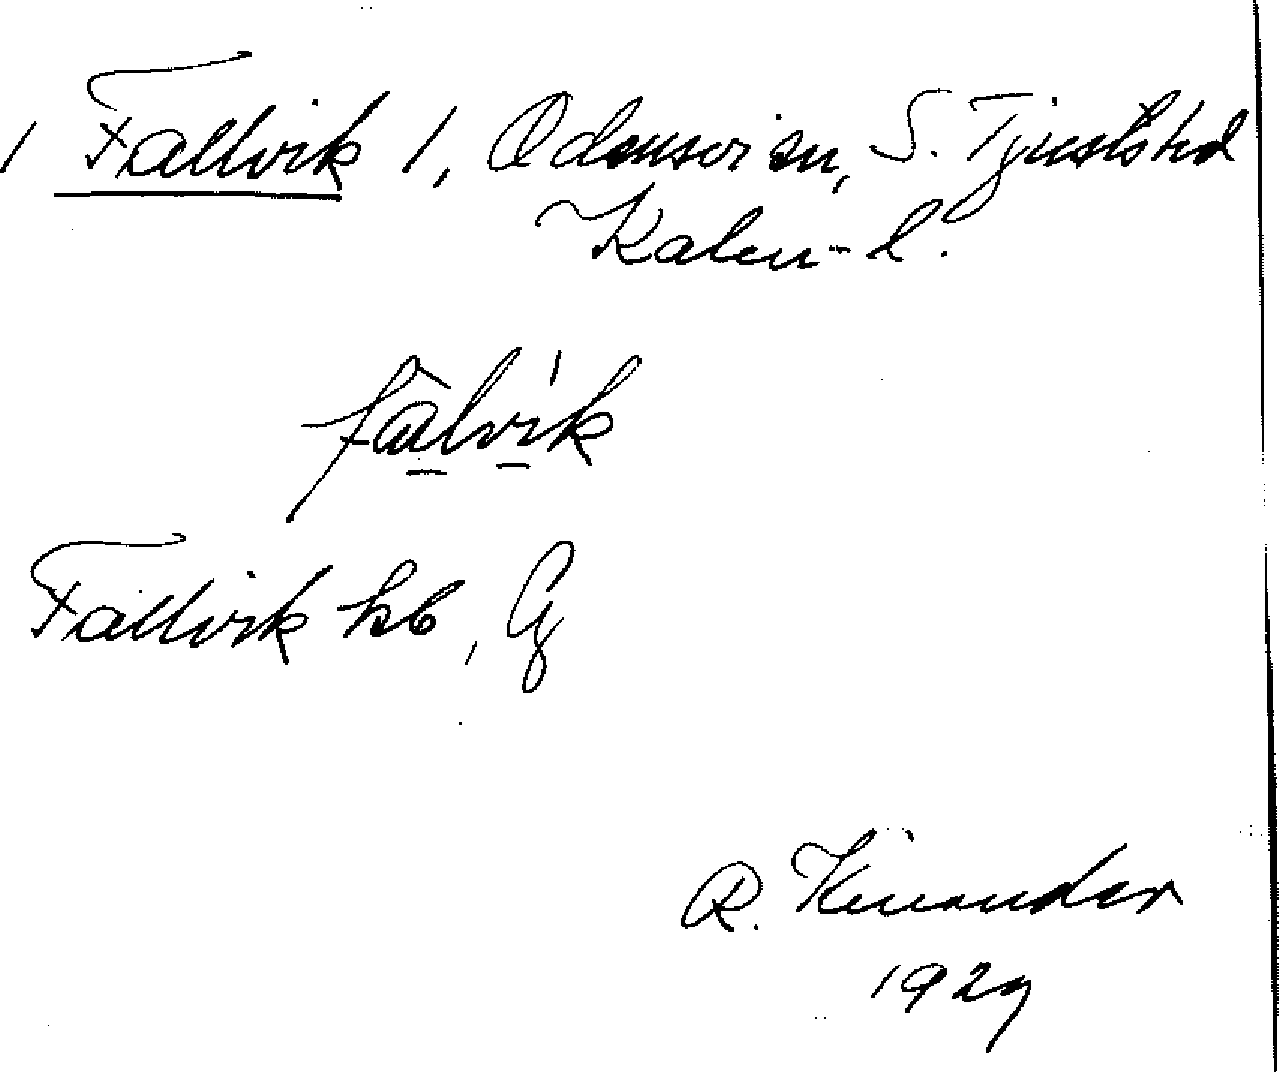 1 Fallvik 1, Odensvi sn, S. Tjusts hd
Kalm. l.
falvik
Fallvik hb, G
R. Kinander
1929